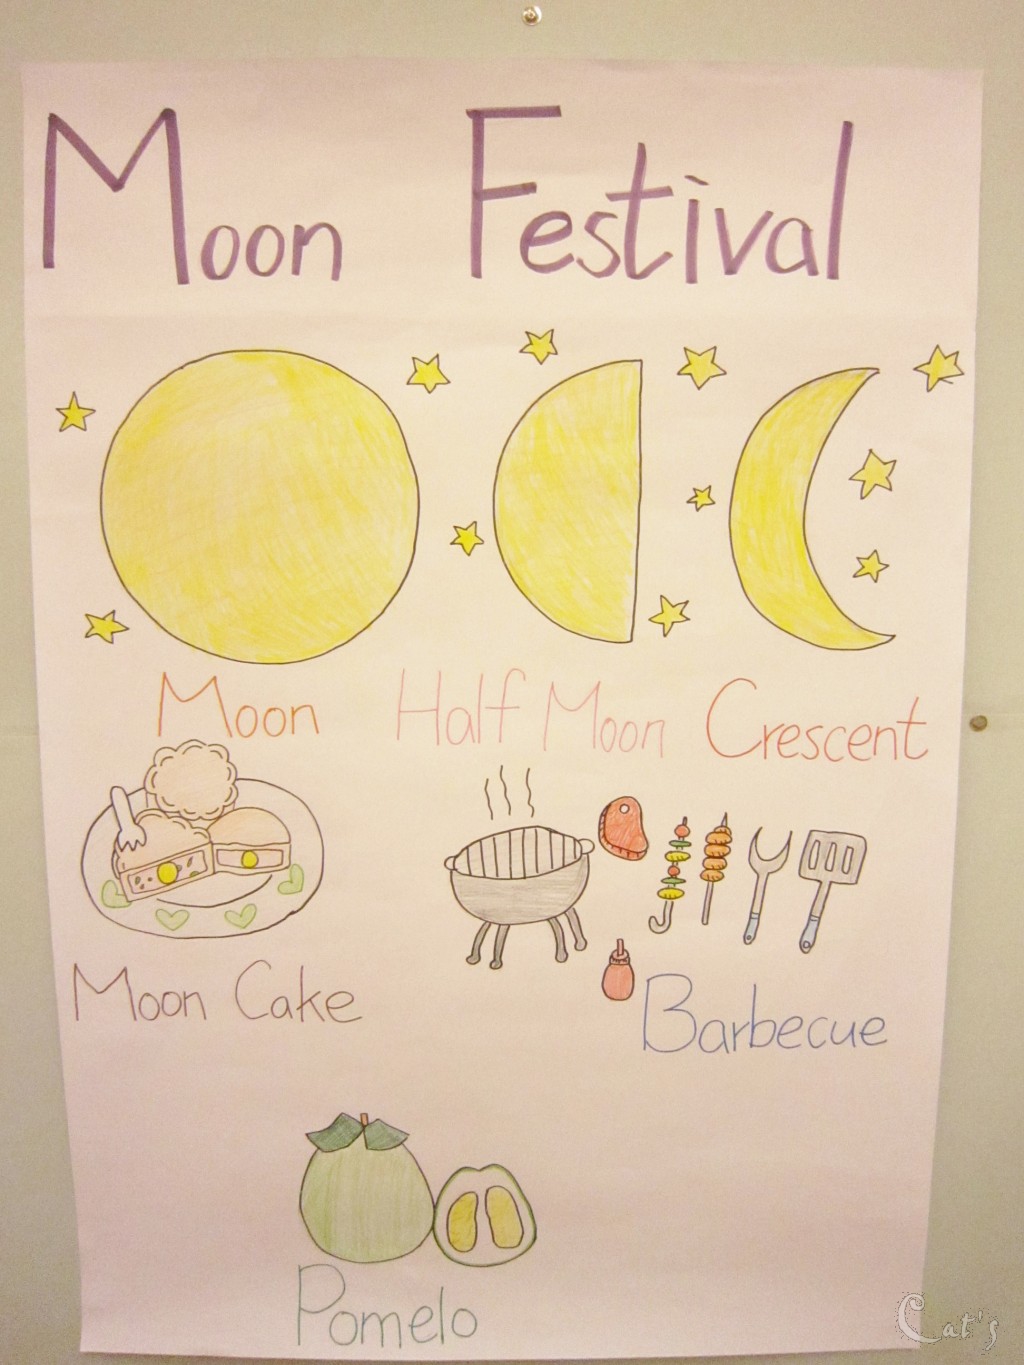 Moon Festival
Moon Half Moon Crescent
Moon Cake
Barbecue
Pomelo
Cat's